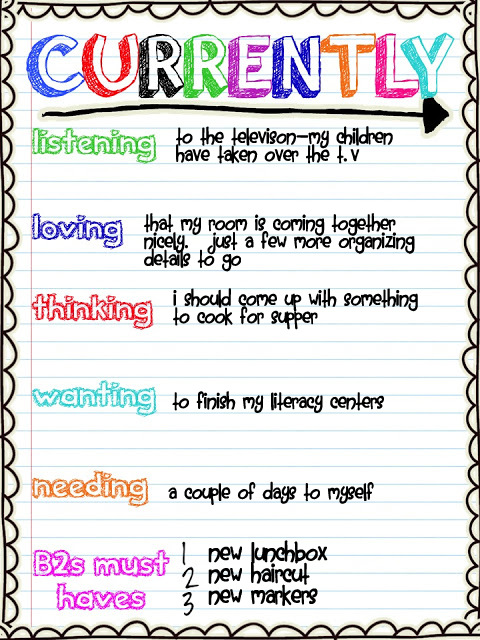 CURRENTLY
listening
to the televison-my children
have taken over the t.v
loving
that my room is coming together
nicely. just a few more organizing
details to go
thinking
i should come up with something
to cook for supper
wanting
to finish my literacy centers
needing
a couple of days to myself
B2s must
haves
1 new lunchbox
2 new haircut
3 new markers